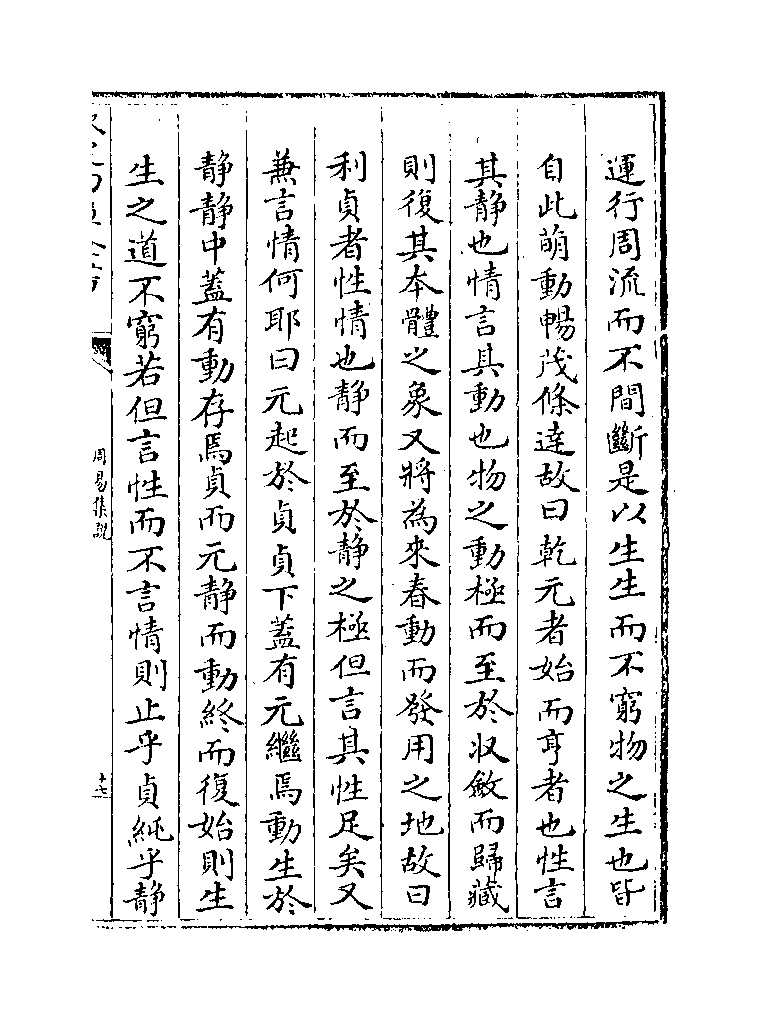 運行周流而不間斷是以生生而不窮物之生也皆
自此萌動暢茂條達故曰乾元者始而亨者也性言
其静也情言其動也物之動極而至於收斂而歸藏
則復其本體之象又將為來春動而發用之地故曰
利貞者性情也静而至於静之極但言其性足矣又
兼言情何耶曰元起於貞貞下蓋有元繼焉動生於
静静中蓋有動存焉貞而元静而動終而復始則生
生之道不窮若但言性而不言情則止乎貞純乎静
周易集說
十七